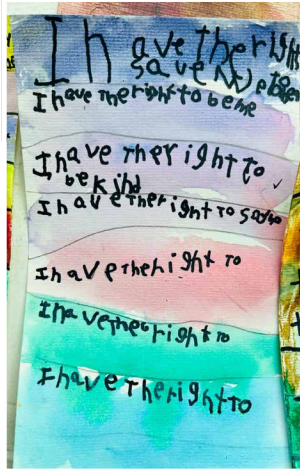 I have the right
to
save
I have the right to be me
I have the right to
be kind
I have the right to
I have the right to
I have the right to
I have the right to